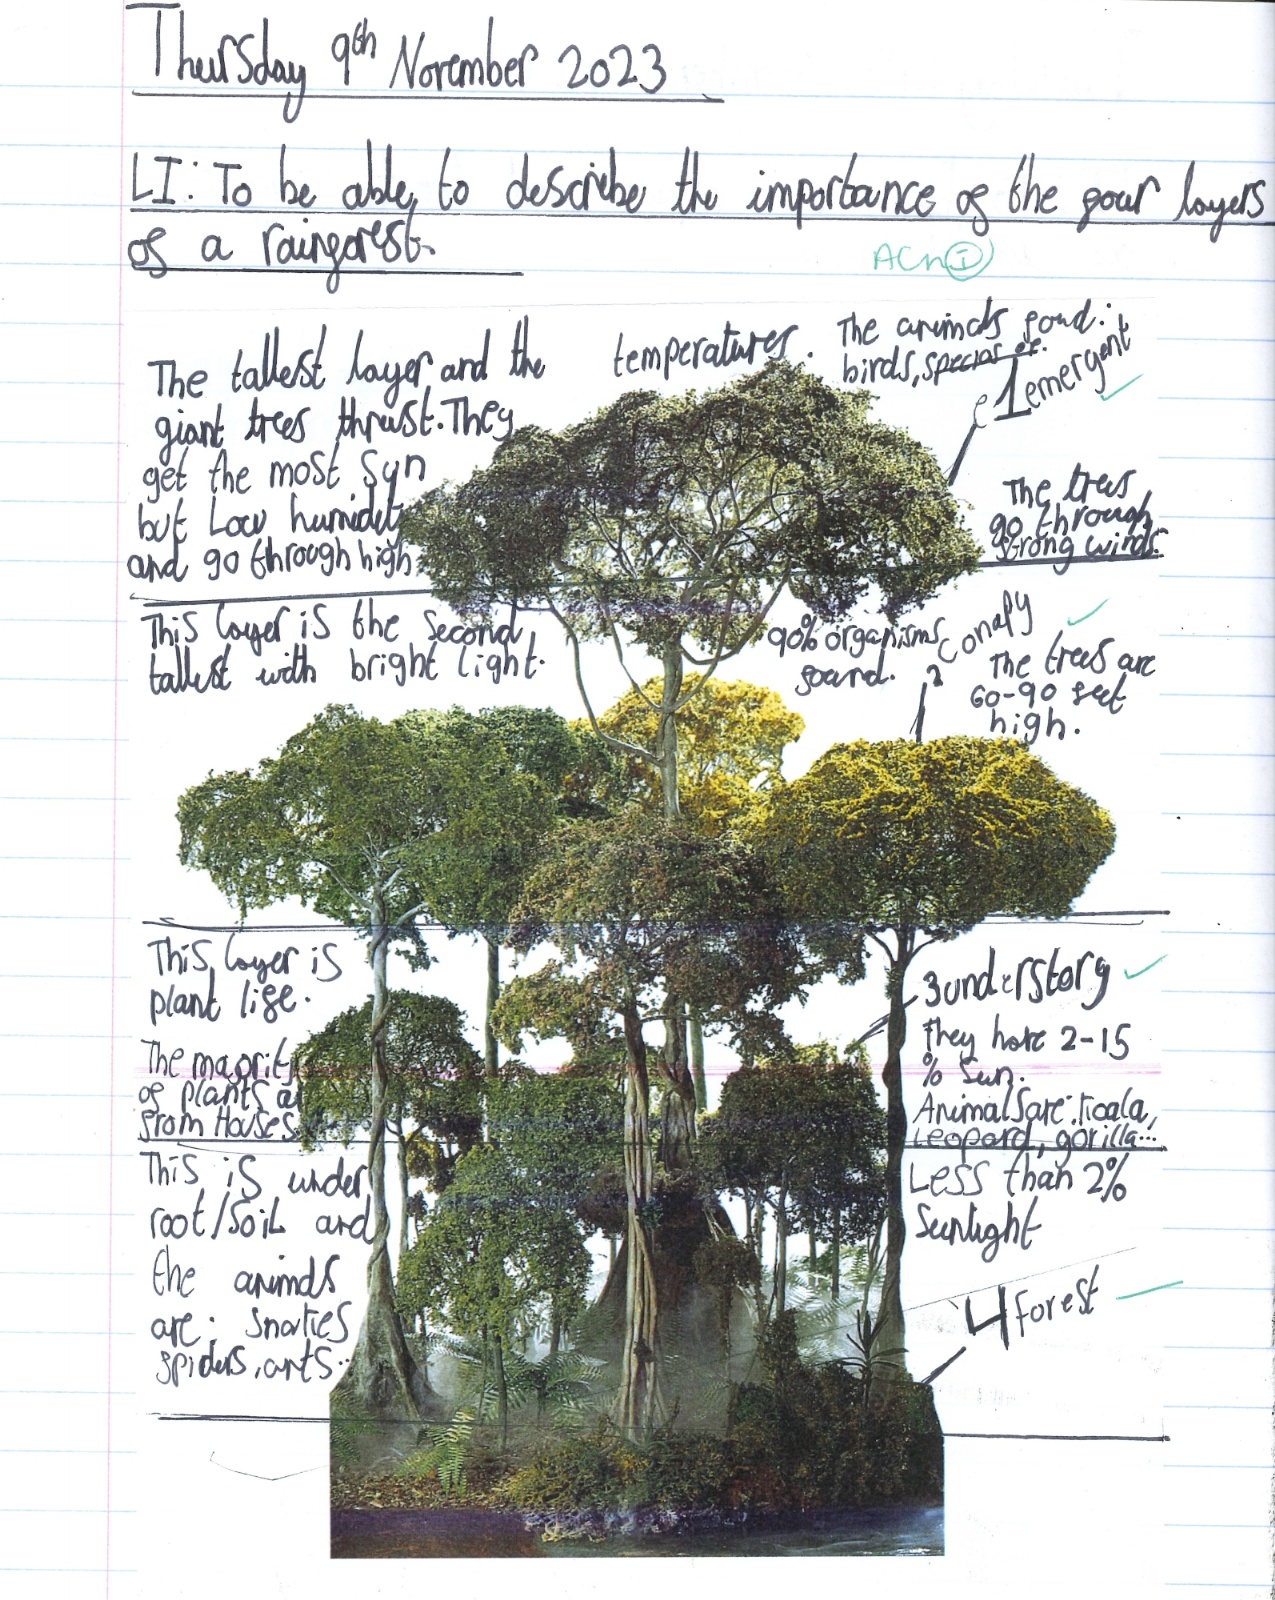 Thursday 9th November 2023
LI: To be able to describe the importance of the four layers
of a rainforest.
ACh I
The tallest layer and the
giant trees thrust. They
get the most sun
but Low humidity
and go through high
temperatures.
The animals found:
birds, species of.
1 emergent
The trees
go through
strong winds.
This layer is the second
tallest with bright light.
90% organisms
found.
2 canapy
The trees are
60-90 feet
high.
This layer is
plant life.
The majority
of plants a
from Houses
3 understory
They have 2-15
% sun.
Animals are: Koala,
Leopard, gorilla...
This is under
root/soil and
the animals
are: snakes
spiders, ants..
Less than 2%
Sunlight
4 forest